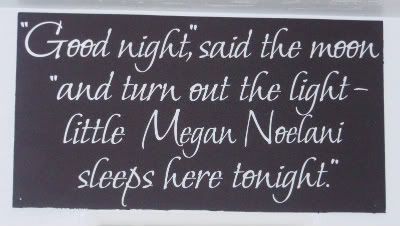 "Good night", said the moon
"and turn out the light -
little Megan Noelani
sleeps here tonight."